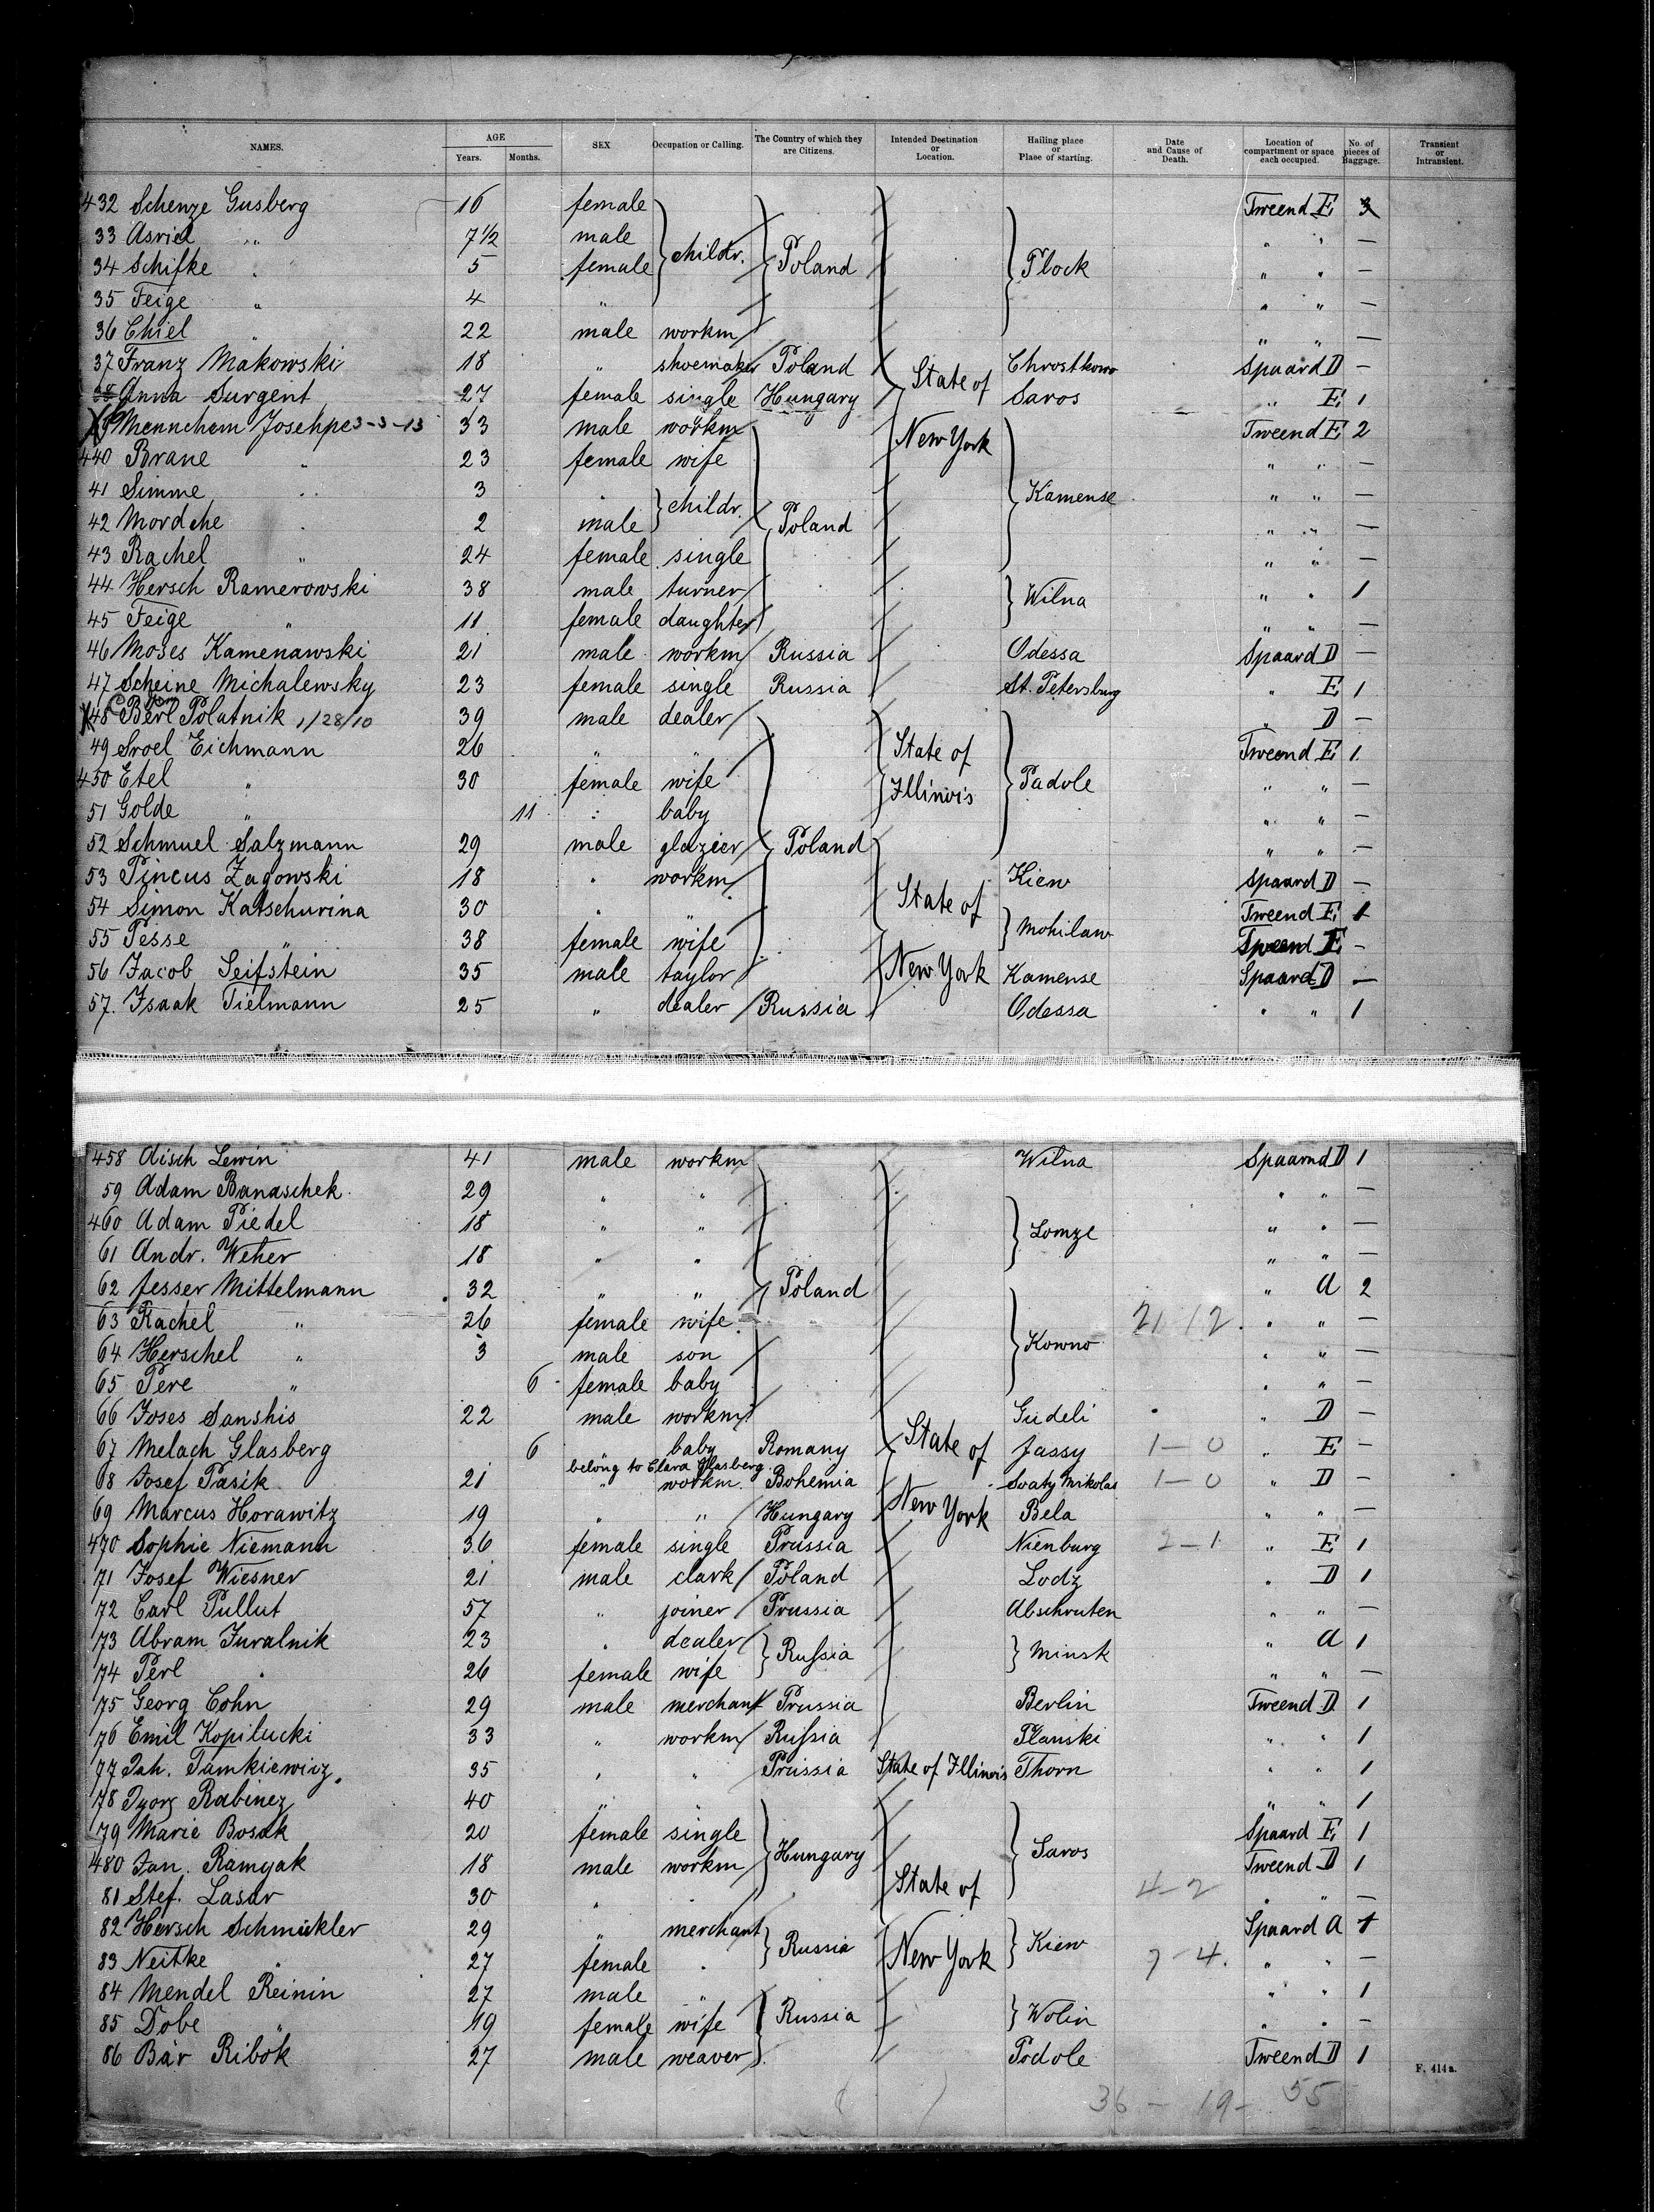 NAMES. AGE Years. Months. SEX Occupation or Calling. The Country of which they are Citizens. Intended Destination or Location. Hailing place or Place of starting. Date and Cause of Death. Location of compartment or space each occupied. No. of pieces of Baggage. Transient or Intransient.
432 Schenze Gusberg 16 female Tweend E 3
33 Asriel " 7 1/2 male " " —
34 Schifke " 5 female } childr. } Poland } Plock " " —
35 Feige " 4 " " " —
36 Chiel " 22 male workm " " —
37 Franz Makowski 18 " shoemaker Poland Chrostkowo Spaard D —
38 Anna Surgent 27 female single Hungary State of Saros " E 1
39 Mennchem Josehpe 3-3-13 33 male workm New York Tweend E 2
440 Brane " 23 female wife " " —
41 Simme " 3 " } childr. } Kamense " " —
42 Mordche " 2 male } Poland " " —
43 Rachel " 24 female single " " —
44 Hersch Ramerowski 38 male turner } Wilna " " 1
45 Feige " 11 female daughter " " —
46 Moses Kamenawski 21 male workm Russia Odessa Spaard D —
47 Scheine Michalewsky 23 female single Russia St. Petersburg " E 1
48 Berl Polatnik 1/28/10 39 male dealer " D —
49 Sroel Eichmann 26 " " State of Tweend E 1
450 Etel " 30 female wife Illinois } Padole " " —
51 Golde " 11 " baby " " —
52 Schmuel Salzmann 29 male glazier } Poland " " —
53 Pincus Zagowski 18 " workm Kiew Spaard D —
54 Simon Katschurina 30 " " State of Tweend E 1
55 Pesse " 38 female wife } Mohilaw Tweend E —
56 Jacob Seifstein 35 male taylor New York Kamense Spaard D —
57. Isaak Tielmann 25 " dealer Russia Odessa " " 1
458 Aisch Lewin 41 male workm Wilna Spaarnd D 1
59 Adam Banaschek 29 " " " " —
460 Adam Piedel 18 " " } Lomze " " —
61 Andr. Weher 18 " " " " —
62 Jesser Mittelmann 32 " " } Poland " A 2
63 Rachel " 26 female wife 21 12. " " —
64 Herschel " 3 male son } Kowno " " —
65 Pere " 6 female baby " " —
66 Joses Sanshis 22 male workm Gudeli " D —
67 Melach Glasberg 6 " baby Romany State of Jassy 1—0 " E —
belong to Clara Glasberg
68 Josef Pasik 21 " workm. Bohemia Svaty Mikolas 1—0 " D —
69 Marcus Horawitz 19 " " Hungary New York Bela " " —
470 Sophie Niemann 36 female single Prussia Nienburg 2—1 " E 1
71 Josef Wiesner 21 male clark Poland Lodz " D 1
72 Carl Pullut 57 " joiner Prussia Abschruten " " —
73 Abram Juralnik 23 " dealer } Russia } Minsk " A 1
74 Perl " 26 female wife " " —
75 Georg Cohn 29 male merchant Prussia Berlin Tweend D 1
76 Emil Kopilucki 33 " workm Russia Planski " " 1
77 Joh. Tamkiewicz 35 " " Prussia State of Illinois Thorn " " 1
78 Dyorg Rabinez 40 " " " " 1
79 Marie Bosak 20 female single } Saros Spaard E 1
480 Jan. Ramyak 18 male workm } Hungary Tweend D 1
81 Stef. Lasar 30 " " State of 4—2 " " —
82 Hersch Schmukler 29 " merchant Spaard A 1
83 Neitke " 27 female " } Russia New York } Kiew 7—4. " " —
84 Mendel Reinin 27 male " " " 1
85 Dobe " 19 female wife } Russia } Wolin " " —
86 Bär Ribok 27 male weaver Podole Tweend D 1
F. 414a.
36 — 19 — 55